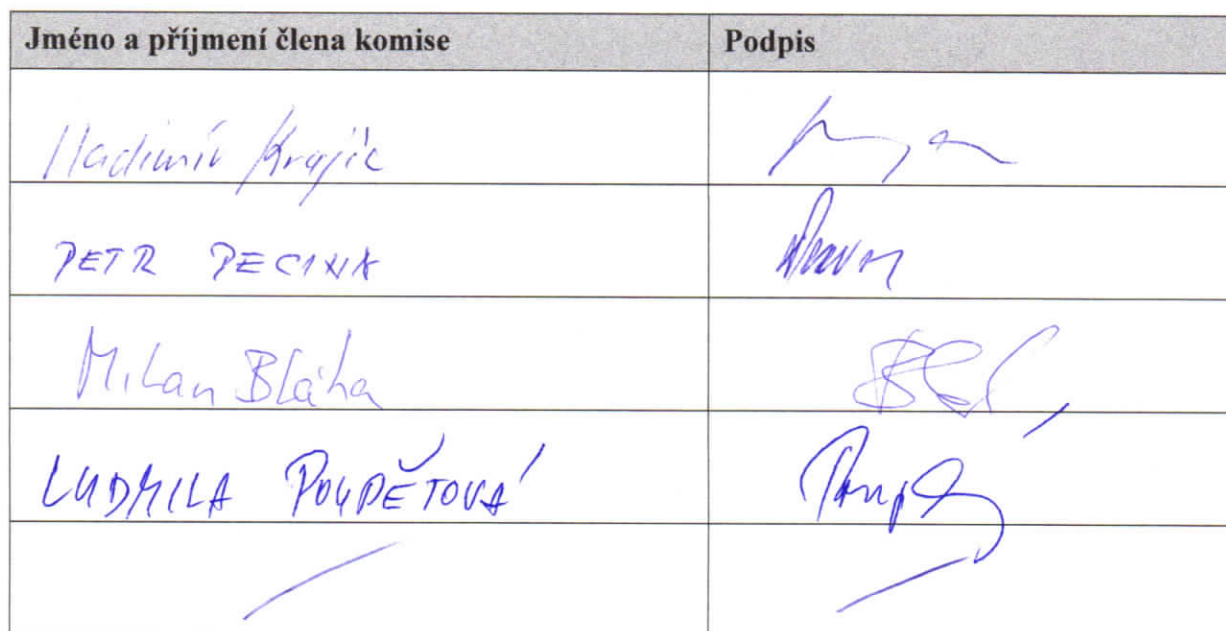 Jméno a příjmení člena komise Podpis
Vladimír Krajíc
PETR PECINA
Milan Bláha
LUDMILA POUPĚTOVÁ